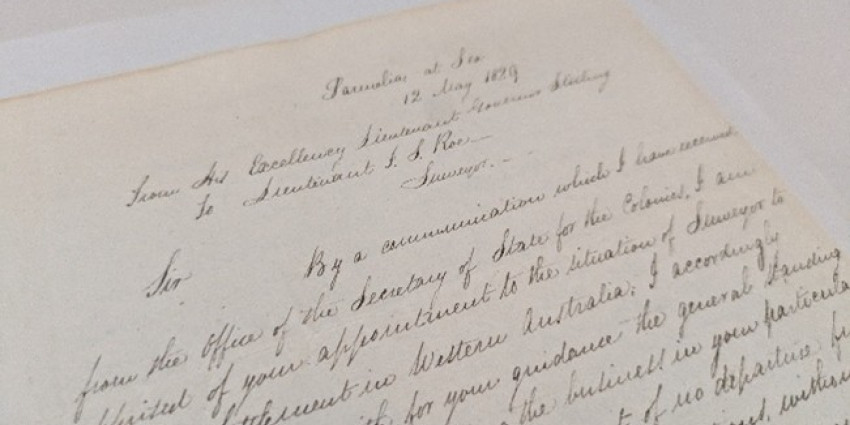 Parmelia at Sea
12 May 1829
From His Excellency Lieutenant Governor Stirling
To Lieutenant J. S. Roe
Surveyor.
Sir By a communication which I have received
from the Office of the Secretary of State for the Colonies, I am
of your appointment to the situation of Surveyor to
in Western Australia; I accordingly
for your guidance the general standing
the business in your particular
of no departure